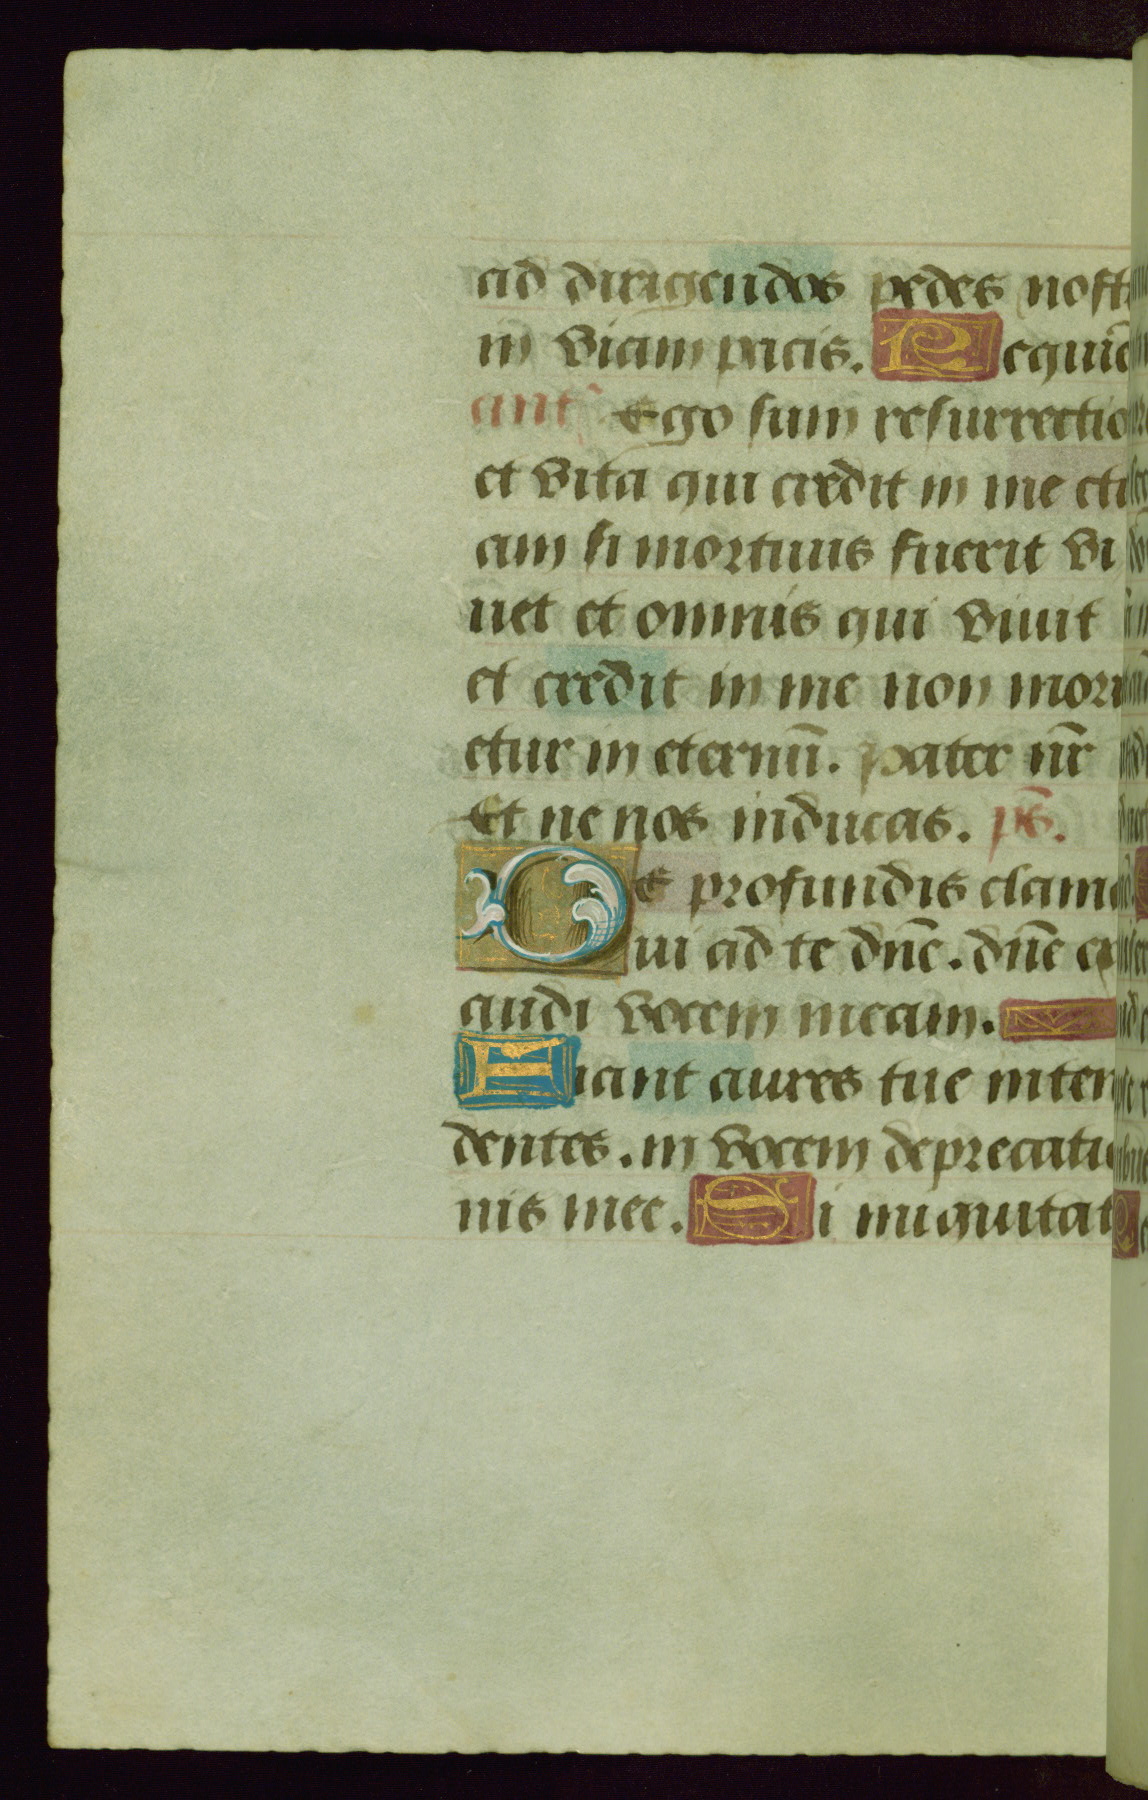 ad dirigendos pedes nost
in viam pacis. Requiē
ant̄ Ego sum resurrectio
et vita qui credit in me eti
am si mortuus fuerit vi
uet et omnis qui viuit
et credit in me non mori
etur in eternū. Pater nr̄
Et ne nos inducas. ps̄.
De profundis clama
ui ad te dn̄e. dn̄e ex
audi vocem meam.
Fiant aures tue inten
dentes. in vocem deprecatio
nis mee. Si iniquitat